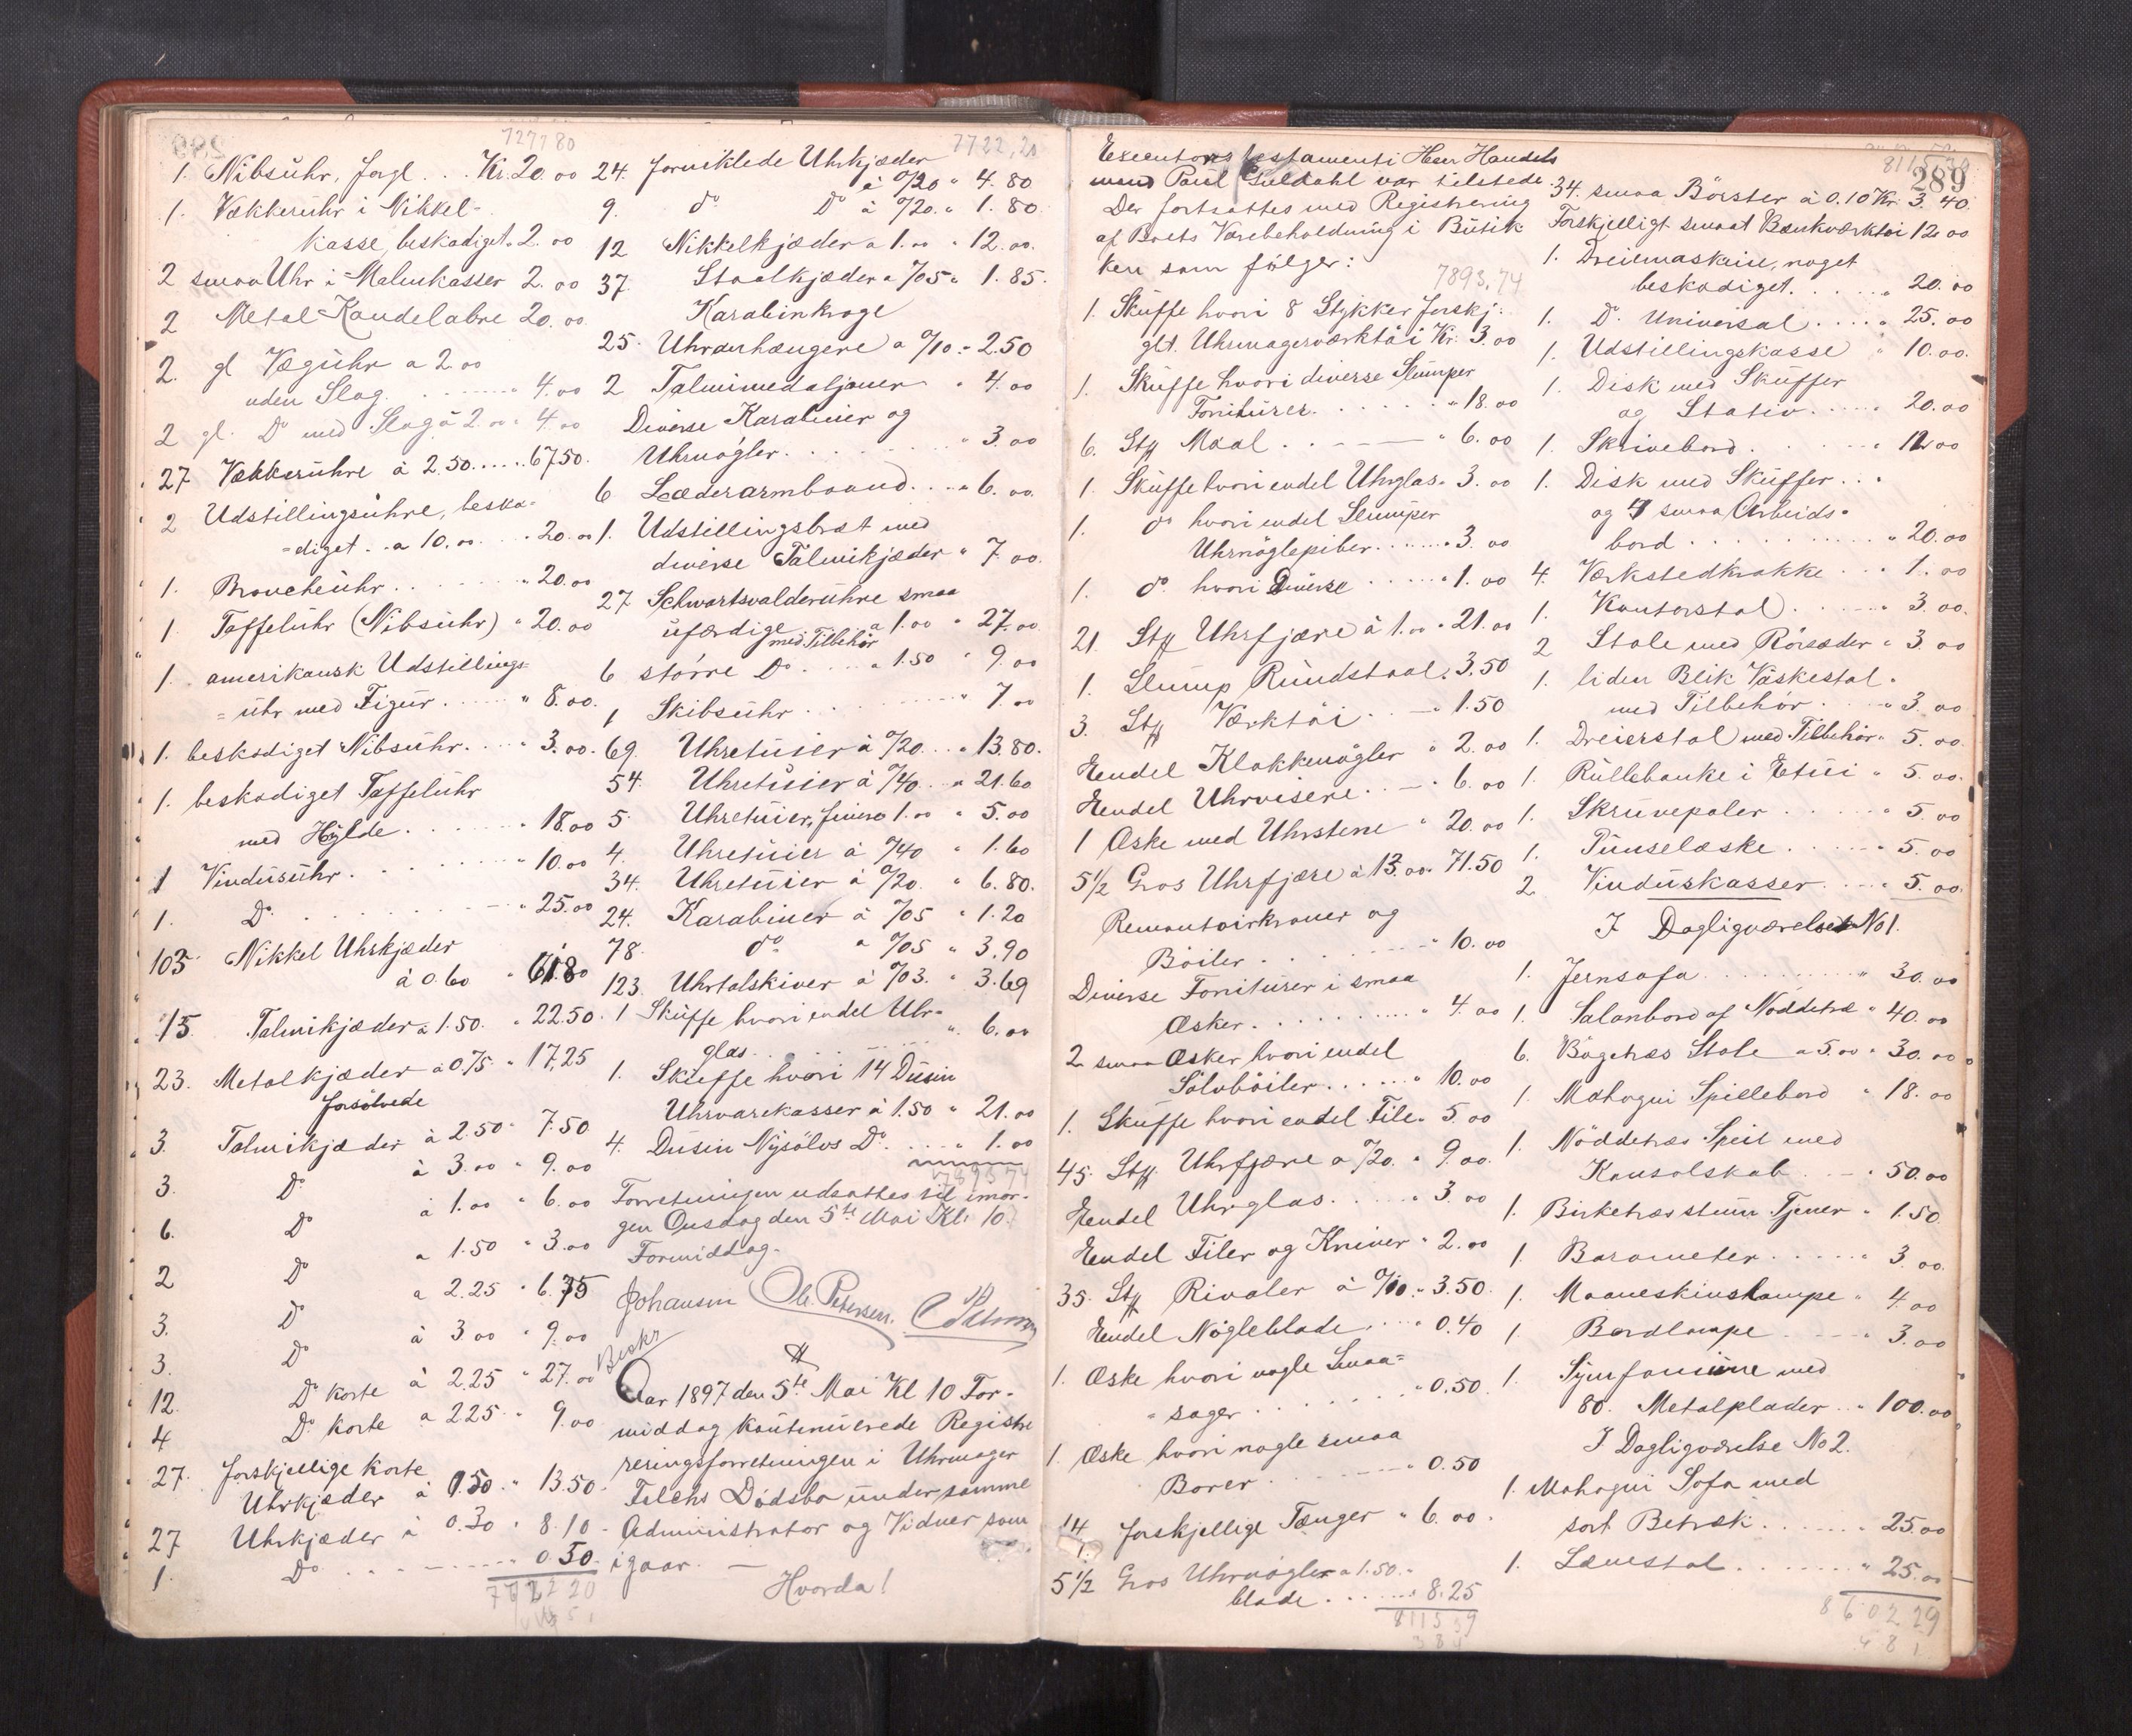 727780
1. Nibsühr, forgl. . . Kr. 20.00
1. Vækkerühr i Nikkel-
kasse, beskadiget. 2.00
2 smaa Uhr i Malmkasser 2.00
2 Metal-Kandelabre 20.00
2. gl Vægühr a 2.00
uden Slag. . . " 4.00
2 gl. Do med Slag à 2.00 " 4.00
27 Vækkerühre à 2.50 . . . 67.50.
2 Udstillingsühre, beska-
=diget. . a 10.00 . . " 20.00
1. Broucheühr. . . " 20.00
1 Taffelühr (Nibsühr) " 20.00
1. amerikansk Udstillings=
=ühr med Figür. . . " 8.00.
1. beskadiget Nibsühr. . . " 3.00.
1. beskadiget Taffelühr
med Hylde. . . " 18.00
1 Vindüsühr. . . 10.00
1. Do. . . . " 25.00
103 Nikkel Uhrkjæder
à 0.60 " 61.80
15. Talmikjæder a 1.50. " 22.50.
23. Metalkjæder a 0.75 " 17,25
forsölvede
3. Talmikjæder à 2.50 " 7.50
3. Do à 3.00 " 9.00
6. Do à 1.00 " 6.00
2 Do a 1.50 " 3.00
3. Do a 2.25 " 6.75
3. Do à 3.00 " 9.00
12. Do korte à 2.25 " 27.00
4 Do korte a 225 " 9.00
27. forskjellige korte
Uhrkjæder à 0.50 " 13.50.
27 Uhrkjæder à 0.30 " 8.10
1. Do . . . 0.50.
7722 20
7722,20
24. forniklede Uhrkjæder
à 0/20 " 4.80
9. do Do à 0/20. " 1.80
12 Nikkelkjæder a 1.00 " 12.00.
37. Staalkjæder a 0/05 " 1.85.
Karabinkroge
25. Uhranhængere a 0/10 " 2.50
2 Talmimedaljoner " 4.00
Diverse Karabiner og
Uhrnögler. . . " 3.00
6 Læderarmbaand. . . " 6.00.
1. Udstillingsbræt med
diverse Talmikjæder " 7.00.
27 Schwartsvalderühre smaa
ufærdige a 1.00 " 27.00
med Tilbehör
6 större Do. . . a 1.50 " 9.00
1 Skibsühr . . . " 7.00
69. Uhretüier à 0/20. . . " 13.80.
54. Uhretüier à 0/40 . . " 21.60
5. Uhretüier, finere 1.00 " 5.00
4. Uhretüier à 0/40 " 1.60
34. Uhretüier à 0/20. " 6.80.
24. Karabiner à 0/05 " 1.20
78. do a 0/05 " 3.90
123. Uhrtalskiver à 0/03. " 3.69
1 Sküffe hvori endel Uhr-
glas. . . " 6.00
1. Sküffe hvori 14 Düsin
Uhrvarekasser à 1.50 " 21.00
4. Düsin Nysölvs Do. . . " 1.00
7893 74
Forretningen udsattes til imor-
gen Onsdag den 5te Mai Kl. 10
Formiddag.
Johansen Ole Petersen.
Beskr
Aar 1897 den 5te Mai Kl 10 For-
middag kontenuerede Registre
reringsforretningen i Uhrmager
Falchs Dödsbo under samme
Administrator og Vidner som
igaar. —
Hvorda!
289
Executores testamenti Herr Handels
mand Paul Guldahl var tilstede.
Der fortsattes med Registrering
af Boets Varebeholdning i Bütik
ken som fölger:
7893,74
1. Sküffe hvori 8 Stykker forskj:
glt. Uhrmagerværktöi Kr. 3.00
1. Sküffe hvori diverse Slumper
Foniturer. . . " 18.00
6. Stff Maal. . . " 6.00
1. Sküffe hvori endel Uhrglas. 3.00
1. do hvori endel Slumper
Uhrnöglepiber. . . " 3.00
1. do hvori Diverse . . . 1.00
21. Stff Uhrfjære à 1.00 " 21.00
1. Slump Rundstaal. 3,50
3. Stff Værktöi. . . 1.50
Eendel Klokkenögler " 2.00
Eendel Uhrvisere. . . " 6.00
1 Æske med Uhrstene " 20.00
5 1/2 Gros Uhrfjære à 13.00 " 71.50
Remontoirkroner og
Böiler. . . " 10.00
Diverse Foniturer i smaa
Æsker. . . " 4.00
2 smaa Æsker hvori endel
Sölvböiler. . . " 10.00
1. Sküffe hvori endel File " 5.00
45. Stff. Uhrfjære a 0/20. " 9.00.
Eendel Uhrglas. . . " 3.00
Eendel Filer og Kniver " 2.00
35. Stff Rivaler à 0/10 " 3.50.
Eendel Nögleblade. . . " 0.40
1. Æske hvori nogle Smaa=
=sager. . . " 0.50.
1. Æske hvori nogle smaa
Borer. . . " 0.50
14 forskjellige Tænger " 6.00.
5 1/2 Gros Uhrnögler a 1.50. "
blade. . . " 8.25
8115 39
34. smaa Börster à 0.10 Kr. 3.40.
Forskjelligt smaat Bænkværktöi 12.00
1. Dreiemaskine, noget
beskadiget. . . " 20.00
1. Do. Universal . . . " 25.00
1. Udstillingskasse " 10.00.
1. Disk med Sküffer
og Stativ. . . " 20.00
1. Skrivebord. . . " 12.00
1. Disk med Sküffer. . .
og 4 smaa Arbeids-
bord . . . " 20.00
4. Værkstedkrakke . . . 1.00
1. Kontorstol. . . " 3.00.
2 Stole med Rörsæder " 3.00
1. liden Blik Vaskestol.
med Tilbehör. . . " 3.00
1. Dreierstol med Tilbehör " 5.00.
1. Rüllebænke i Etüi " 5.00.
1. Skruvepoler . . . " 5.00
1. Pünselæske. . . " 5.00
2. Vindüskasser. . . " 5.00.
I Dagligværelset No 1.
1. Jernsofa . . . " 30.00
1. Salonbord af Nöddetræ " 40.00
6. Bögetræs Stole a 5.00 " 30.00
1. Mahogni Spillebord " 18.00
1. Nöddetræs Speil med
Konsolskab . . " 50.00
1. Birketræs stum Tjener " 1.50
1. Barometer. . . " 3.00.
1. Maaneskinslampe " 4.00
1. Bordlampe . . . " 3.00
1. Symfonium med
80. Metalplader. . " 100.00
I Dagligværelse No 2.
1. Mahogni Sofa med
sort Betræk. . . " 25.00
1. Lænestol. . . " 25.00
8602 29